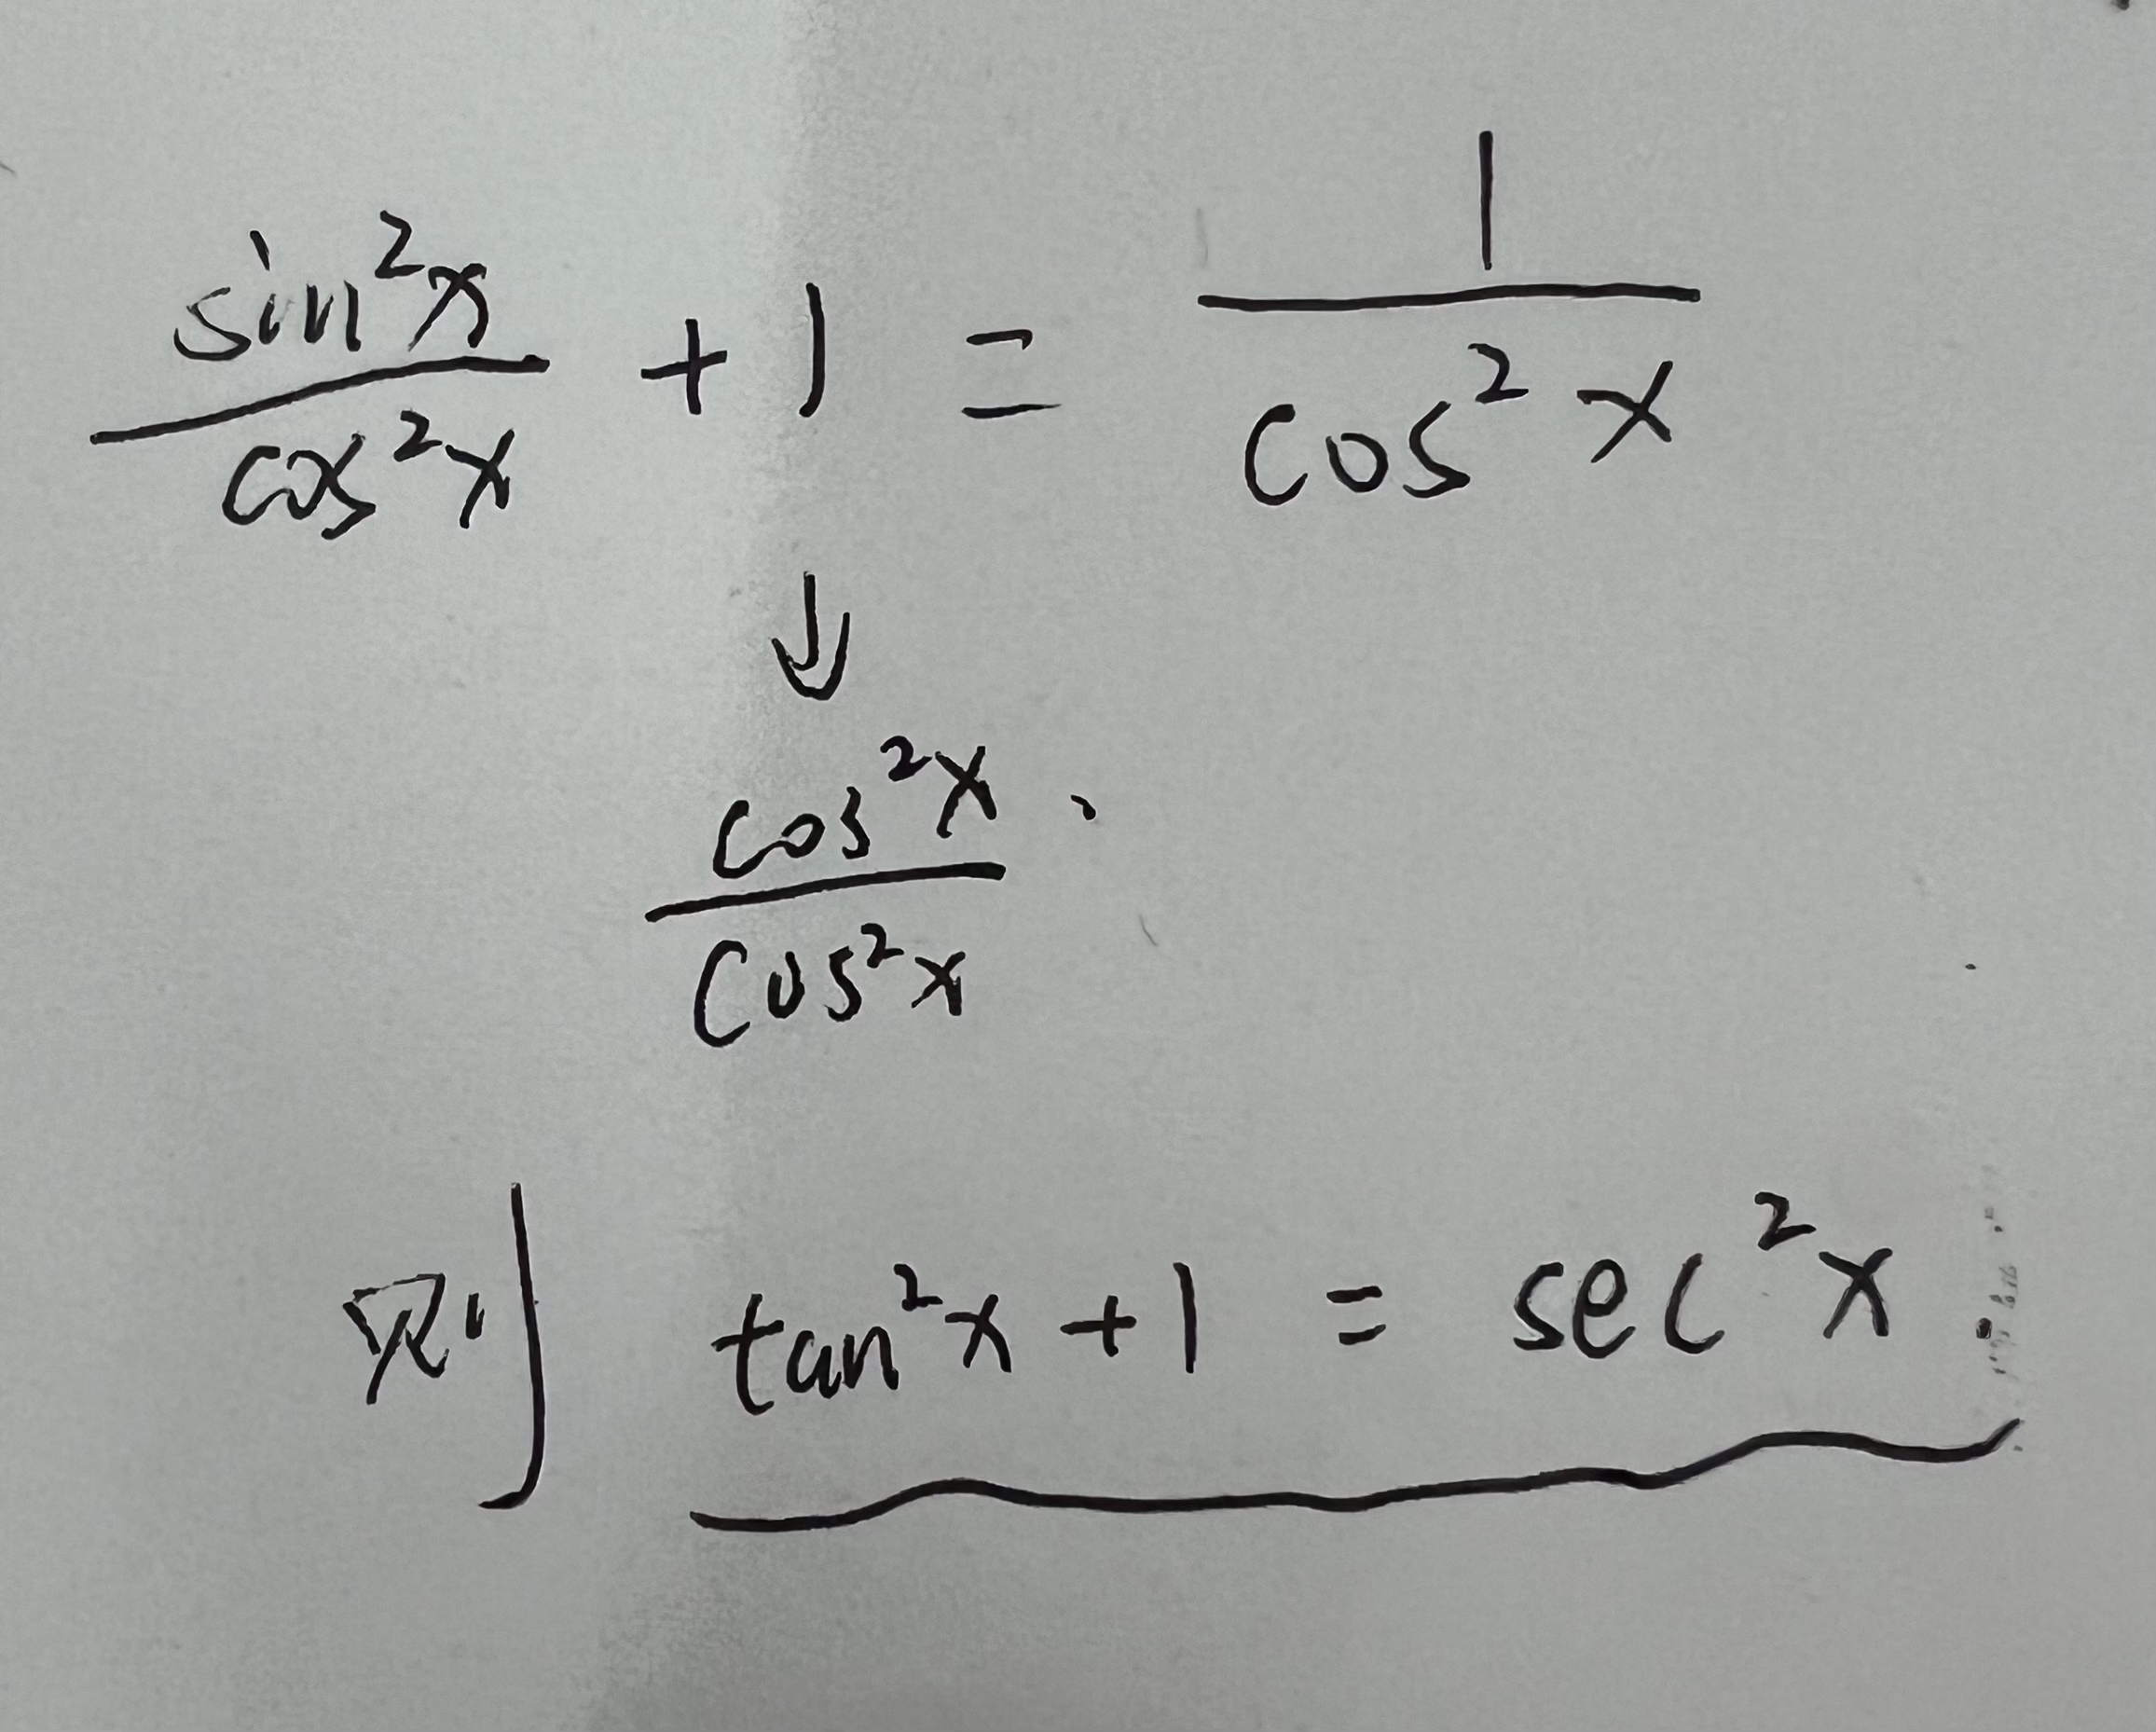 sin²x / cos²x + 1 = 1 / cos² x
↓
cos²x / cos²x .
则 tan²x + 1 = sec²x .